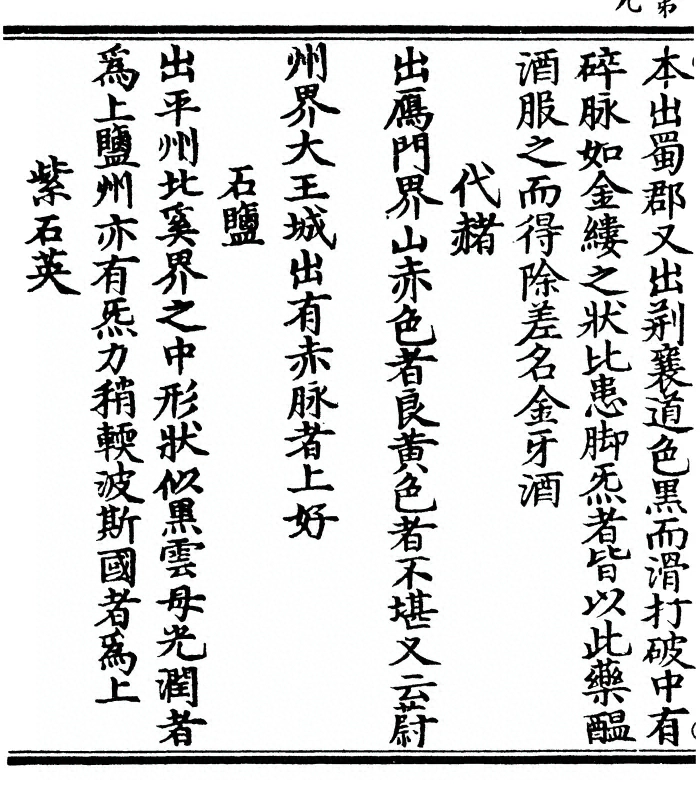 本出蜀郡又出荆襄道色黒而滑打破中有
碎脉如金縷之狀比患脚炁者皆以此藥醖
酒服之而得除差名金牙酒
代赭
出鴈門界山赤色者良黄色者不堪又云蔚
州界大王城出有赤脉者上好
石鹽
出平州北奚界之中形狀似黒雲母光潤者
爲上鹽州亦有炁力稍輭波斯國者爲上
紫石英